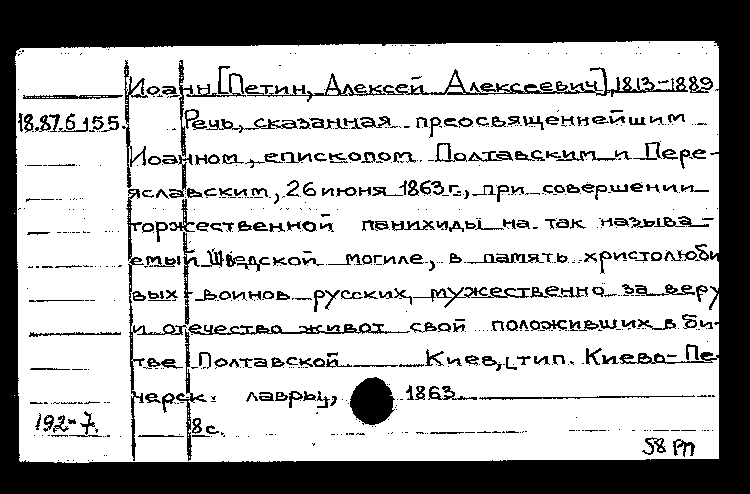 Иоанн [Петин, Алексей Алексеевич], 1813-1889
18.87.6.155. Речь, сказанная преосвященнейшим
Иоанном, епископом Полтавским и Пере-
яславским, 26 июня 1863 г., при совершении
торжественной панихиды на так называ-
емый Шведской могиле, в память христолюби
вых воинов русских, мужественно за веру
и отечество живот свой положивших в би-
тве Полтавской Киев, тип. Киево-Пе-
черск. лавры, 1863.
192-7. 8 с.
58 РП